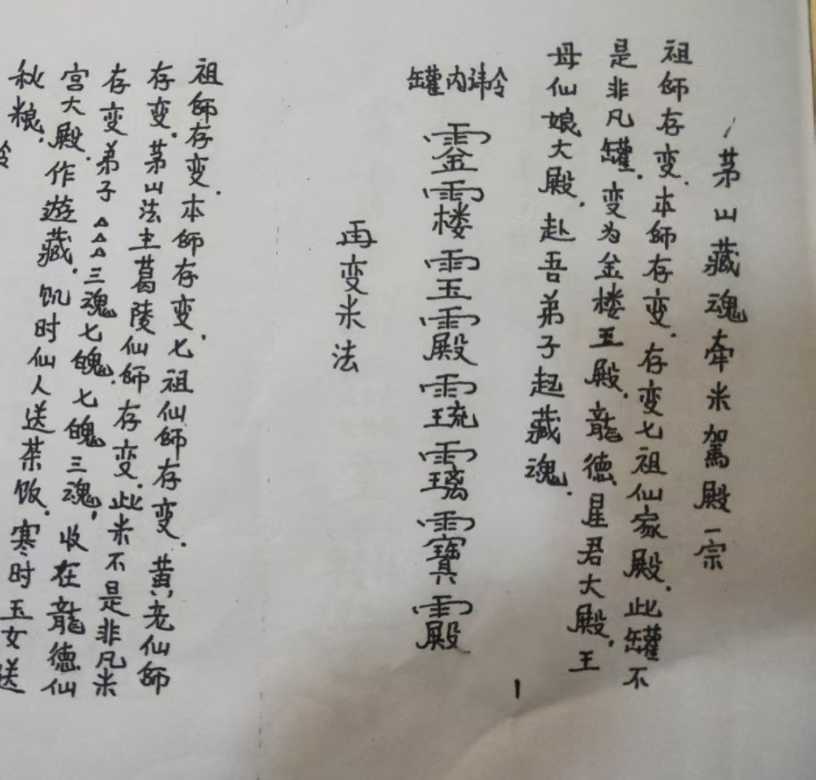 茅山藏魂牵米駕殿一宗
祖師存变.本師存变.存变七祖仙家殿.此罐不
是非凡罐.变为金楼玉殿.龍德星君大殿,王
母仙娘大殿.赴吾弟子起藏魂.
罐内讳令
金楼玉殿琉璃寶殿
1
再变米法
祖師存变.本師存变,七祖仙師存变.黄老仙師
存变.茅山法主葛陵仙師存变.此米不是非凡米
存变弟子△△△三魂七魄.七魄三魂,收在龍德仙
宫大殿.作遊藏.饥时仙人送茶饭.寒时玉女送
秋粮.